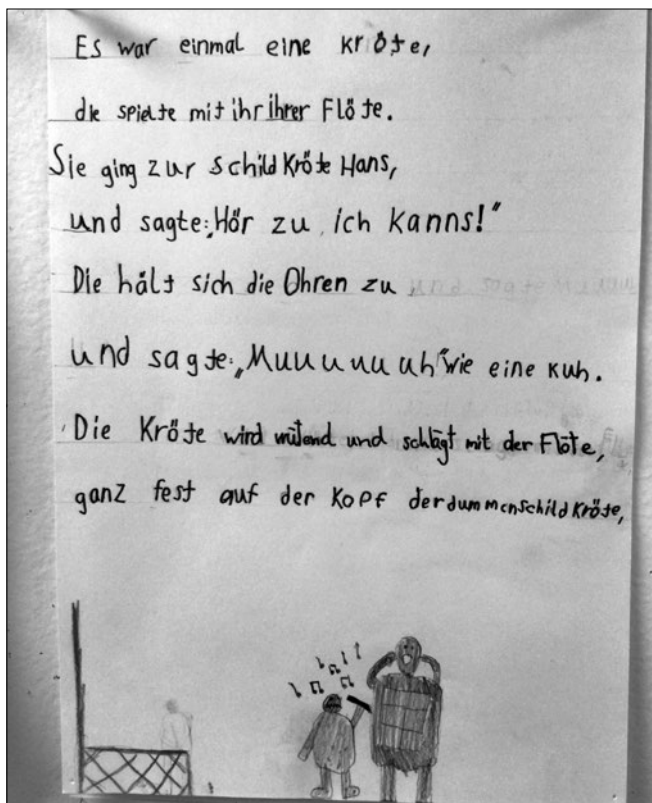 Es war einmal eine Kröte,
die spielte mit ihr ihrer Flöte.
Sie ging zur schildKröte Hans,
und sagte:„Hör zu, ich kanns!“
Die hält sich die Ohren zu,
und sagte:„Muuuuuuh“ wie eine Kuh.
Die Kröte wird wütend und schlägt mit der Flöte,
ganz fest auf der Kopf der dummen schildKröte,